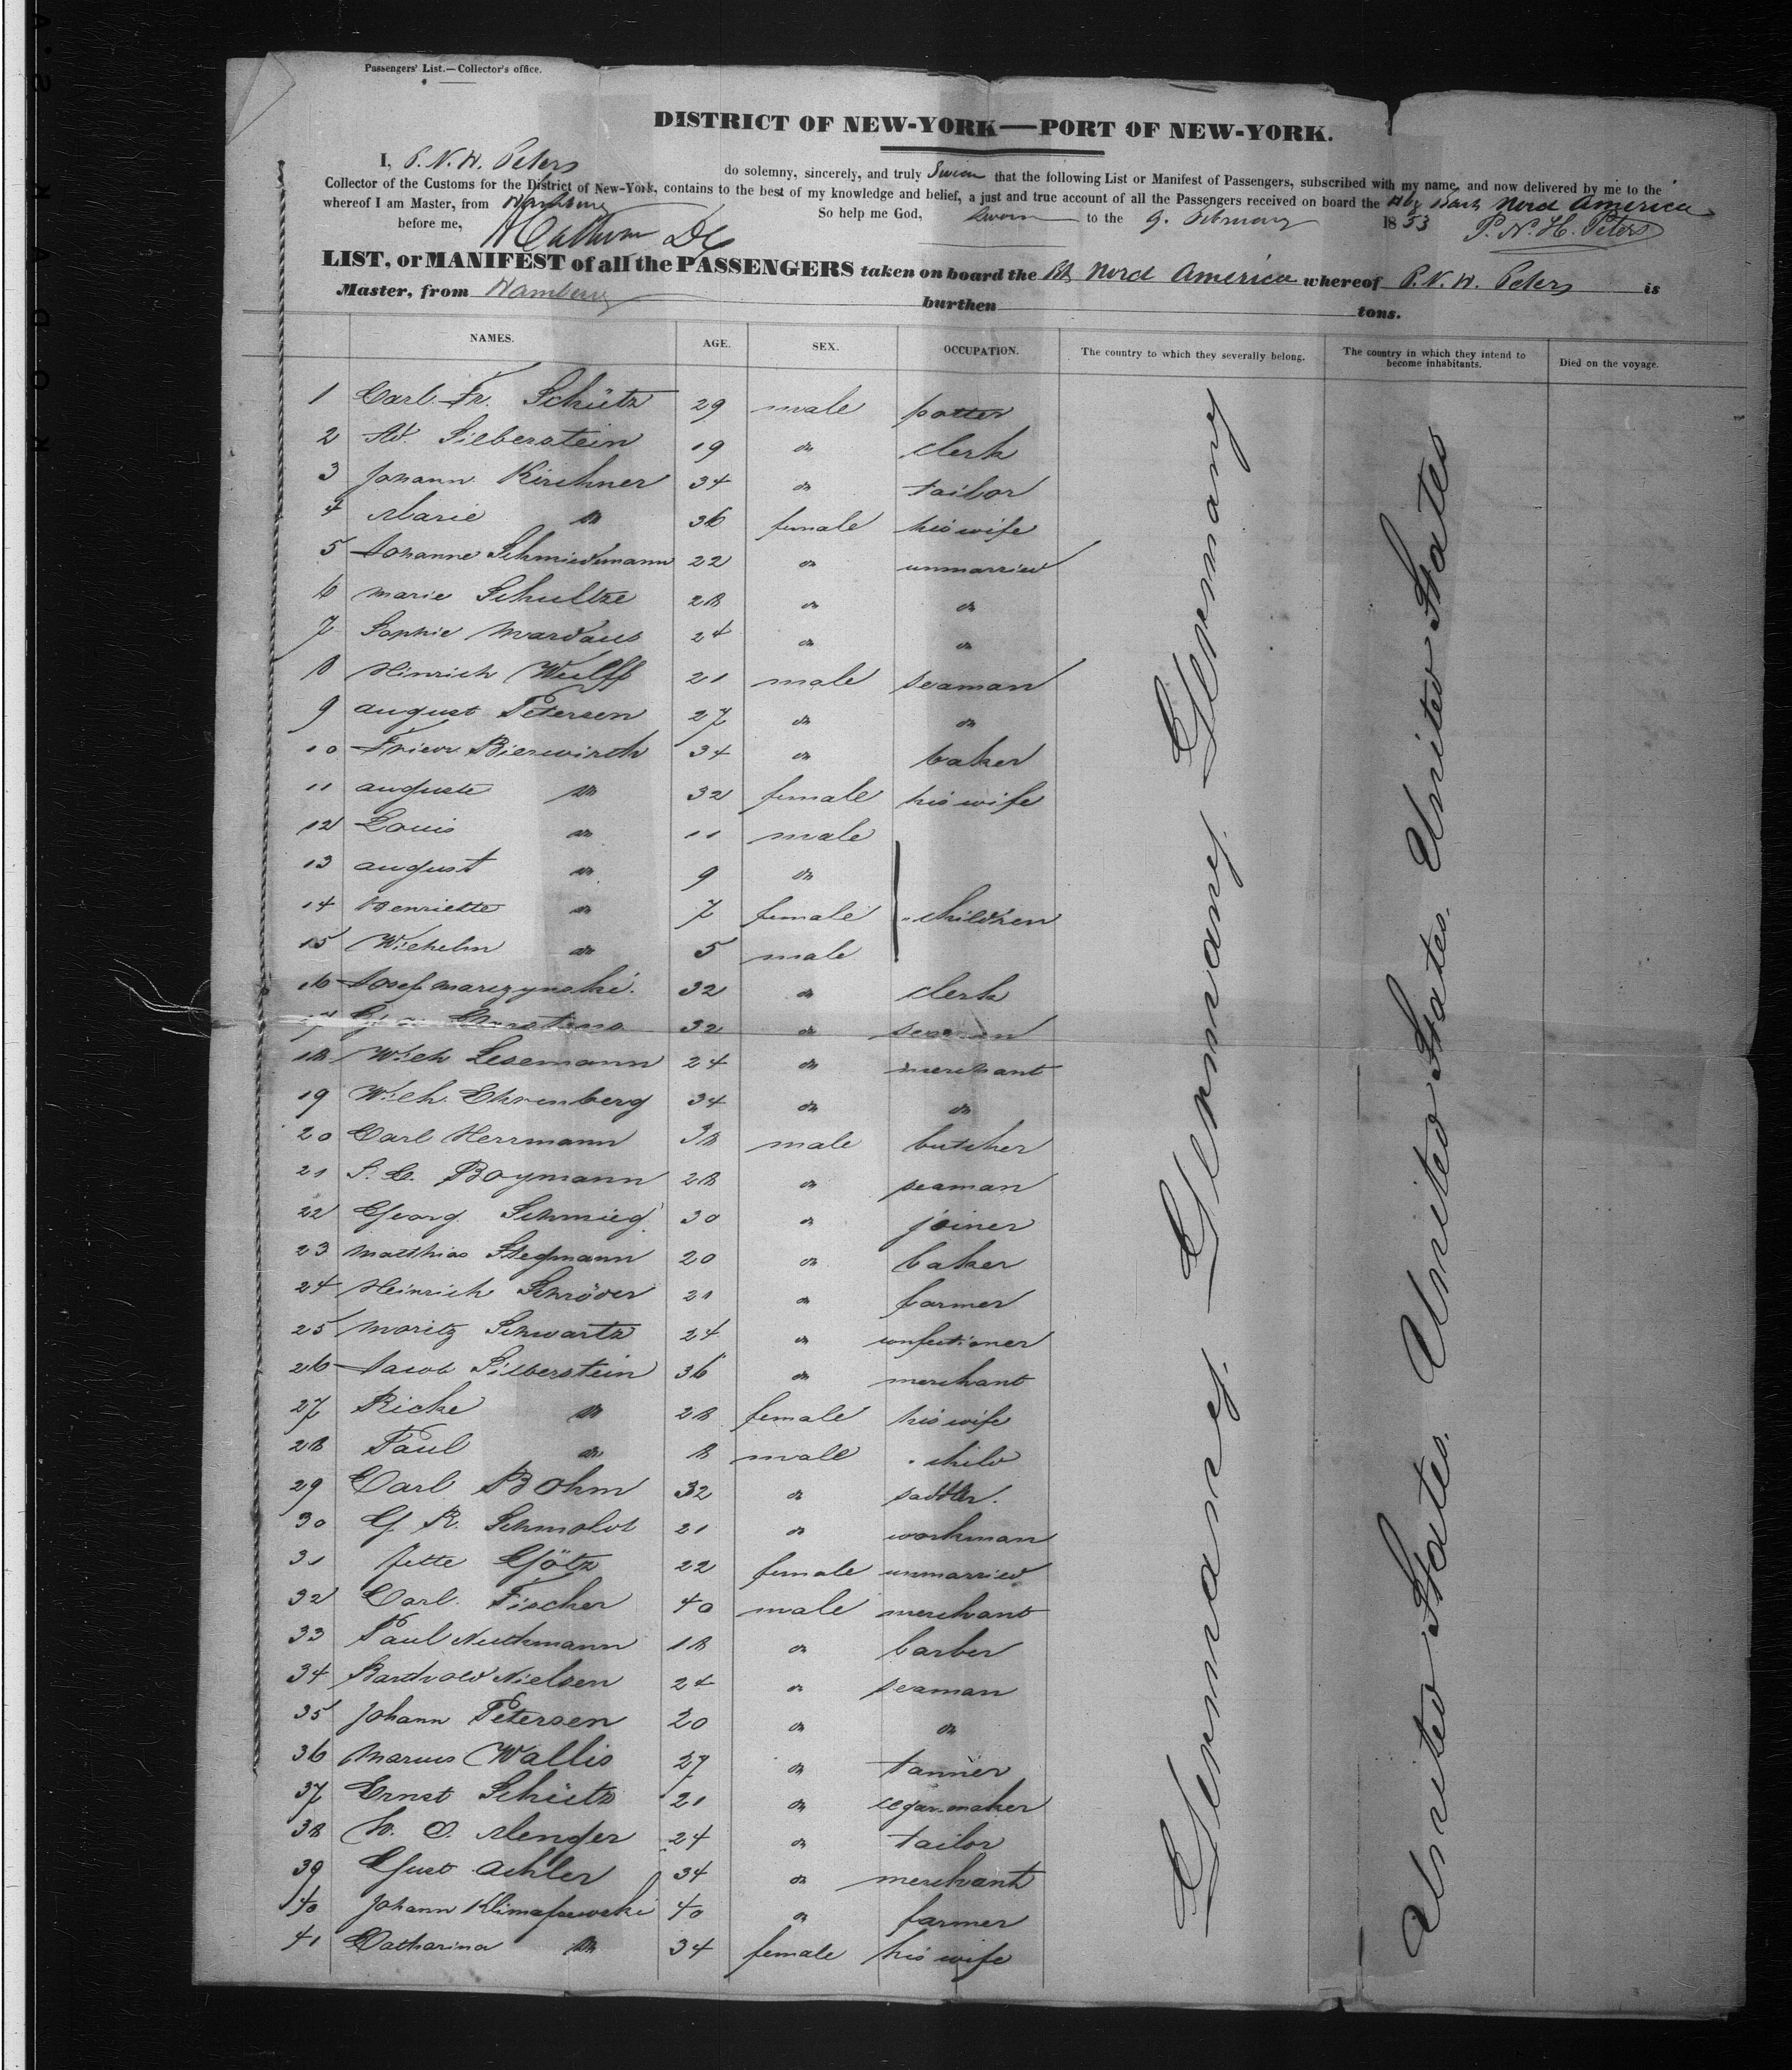 Passengers' List.—Collector's office.
DISTRICT OF NEW-YORK—PORT OF NEW-YORK.
I, P. N. H. Peters do solemny, sincerely, and truly Swear that the following List or Manifest of Passengers, subscribed with my name, and now delivered by me to the
Collector of the Customs for the District of New-York, contains to the best of my knowledge and belief, a just and true account of all the Passengers received on board the Hbg Bark Nord America
whereof I am Master, from Hamburg So help me God, sworn to the 9. February 1853 P. N. H. Peters
before me,
LIST, or MANIFEST of all the PASSENGERS taken on board the Bk Nord America whereof P. N. H. Peters is
Master, from Hamburg burthen tons.
NAMES. AGE. SEX. OCCUPATION. The country to which they severally belong. The country in which they intend to become inhabitants. Died on the voyage.
1 Carl Fr. Schütz 29 male potter
2 Ad. Silberstein 19 do clerk
3 Johann Kirchner 34 do tailor
4 Marie do 36 female his wife
5 Johanne Schmiedemann 22 do unmarried
6 Marie Schultze 28 do do
7 Sophie Mardaus 24 do do
8 Hinrich Wulff 21 male seaman
9 August Petersen 27 do do
10 Friedr Bierwirth 34 do baker
11 Auguste do 32 female his wife
12 Louis do 11 male
13 August do 9 do
14 Henriette do 7 female children
15 Wilhelm do 5 male
16 Josef Marczynski. 32 do clerk
17 Carstens 32 do seaman
18 Wilh Lesemann 24 do merchant
19 Wilh. Ehrenberg 34 do do
20 Carl Herrmann 38 male butcher
21 S. C. Boymann 28 do seaman
22 Georg Schmieg 30 do joiner
23 Matthias Stegmann 20 do baker
24 Heinrich Schröder 21 do farmer
25 Moritz Schwartz 24 do confectioner
26 Jacob Silberstein 36 do merchant
27 Ricke do 28 female his wife
28 Paul do 8 male child
29 Carl Bohm 32 do saddler.
30 G R. Schmoldt 21 do workman
31 Jette Götz 22 female unmarried
32 Carl Fischer 40 male merchant
33 Paul Nuthmann 18 do barber
34 Barthold Nielsen 24 do seaman
35 Johann Petersen 20 do do
36 Marcus Wallis 27 do tanner
37 Ernst Schütz 21 do segar-maker
38 H. O. Menger 24 do tailor
39 Gust Achler 34 do merchant
40 Johann Klimaszewski 40 do farmer
41 Catharina do 34 female his wife
Germany. Germany. Germany. Germany
United States. United States. United States. United States